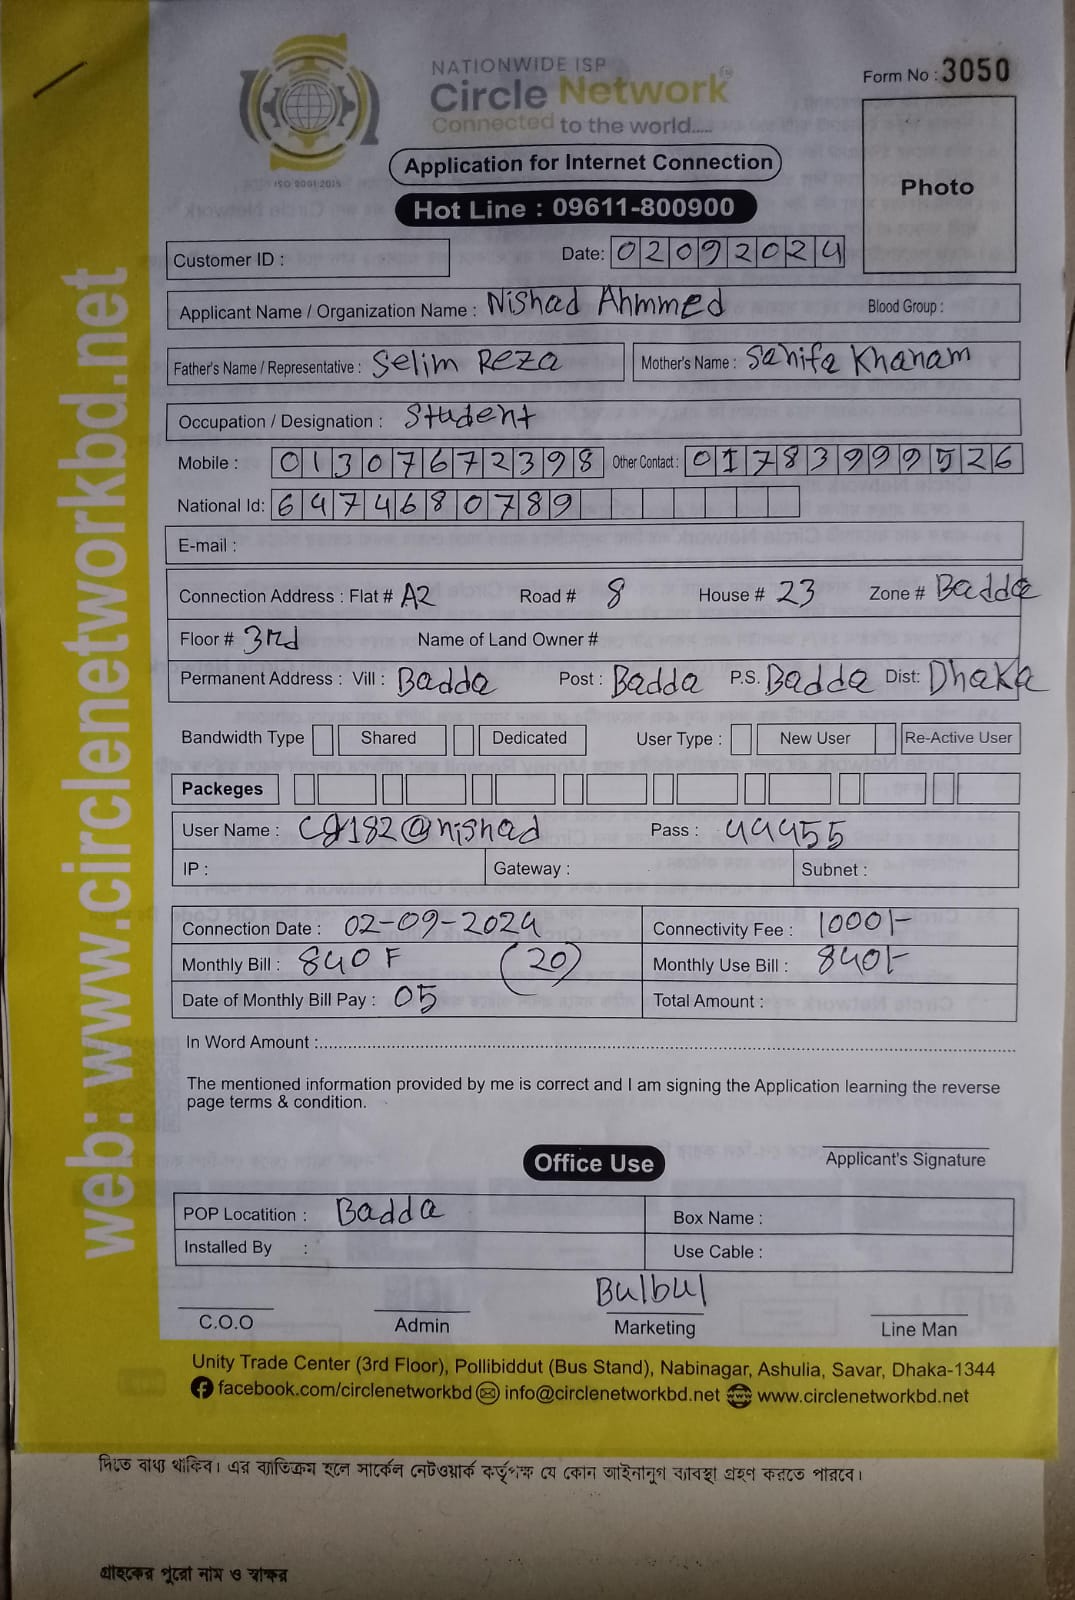 NATIONWIDE ISP
Circle Network
Connected to the world.....
ISO 9001:2015
Form No : 3050
Application for Internet Connection
Hot Line : 09611-800900
Photo
Customer ID :
Date: 02092024
Applicant Name / Organization Name : Nishad Ahmmed Blood Group :
Father's Name / Representative : Selim Reza Mother's Name : Sanifa Khanam
Occupation / Designation : Student
Mobile : 01307672398 Other Contact : 01783999526
National Id: 6474680789
E-mail :
Connection Address : Flat # A2 Road # 8 House # 23 Zone # Badda
Floor # 3rd Name of Land Owner #
Permanent Address : Vill : Badda Post : Badda P.S. Badda Dist: Dhaka
Bandwidth Type Shared Dedicated User Type : New User Re-Active User
Packeges
User Name : @nishad Pass : 44455
IP : Gateway : Subnet :
Connection Date : 02-09-2024 Connectivity Fee : 1000/-
Monthly Bill : 840 F (20) Monthly Use Bill : 840/-
Date of Monthly Bill Pay : 05 Total Amount :
In Word Amount :
The mentioned information provided by me is correct and I am signing the Application learning the reverse
page terms & condition.
Applicant's Signature
Office Use
POP Locatition : Badda Box Name :
Installed By : Use Cable :
Bulbul
C.O.O Admin Marketing Line Man
Unity Trade Center (3rd Floor), Pollibiddut (Bus Stand), Nabinagar, Ashulia, Savar, Dhaka-1344
facebook.com/circlenetworkbd info@circlenetworkbd.net www.circlenetworkbd.net
web: www.circlenetworkbd.net
দিতে বাধ্য থাকিব। এর ব্যতিক্রম হলে সার্কেল নেটওয়ার্ক কর্তৃপক্ষ যে কোন আইনানুগ ব্যবস্থা গ্রহণ করতে পারবে।
গ্রাহকের পুরো নাম ও স্বাক্ষর